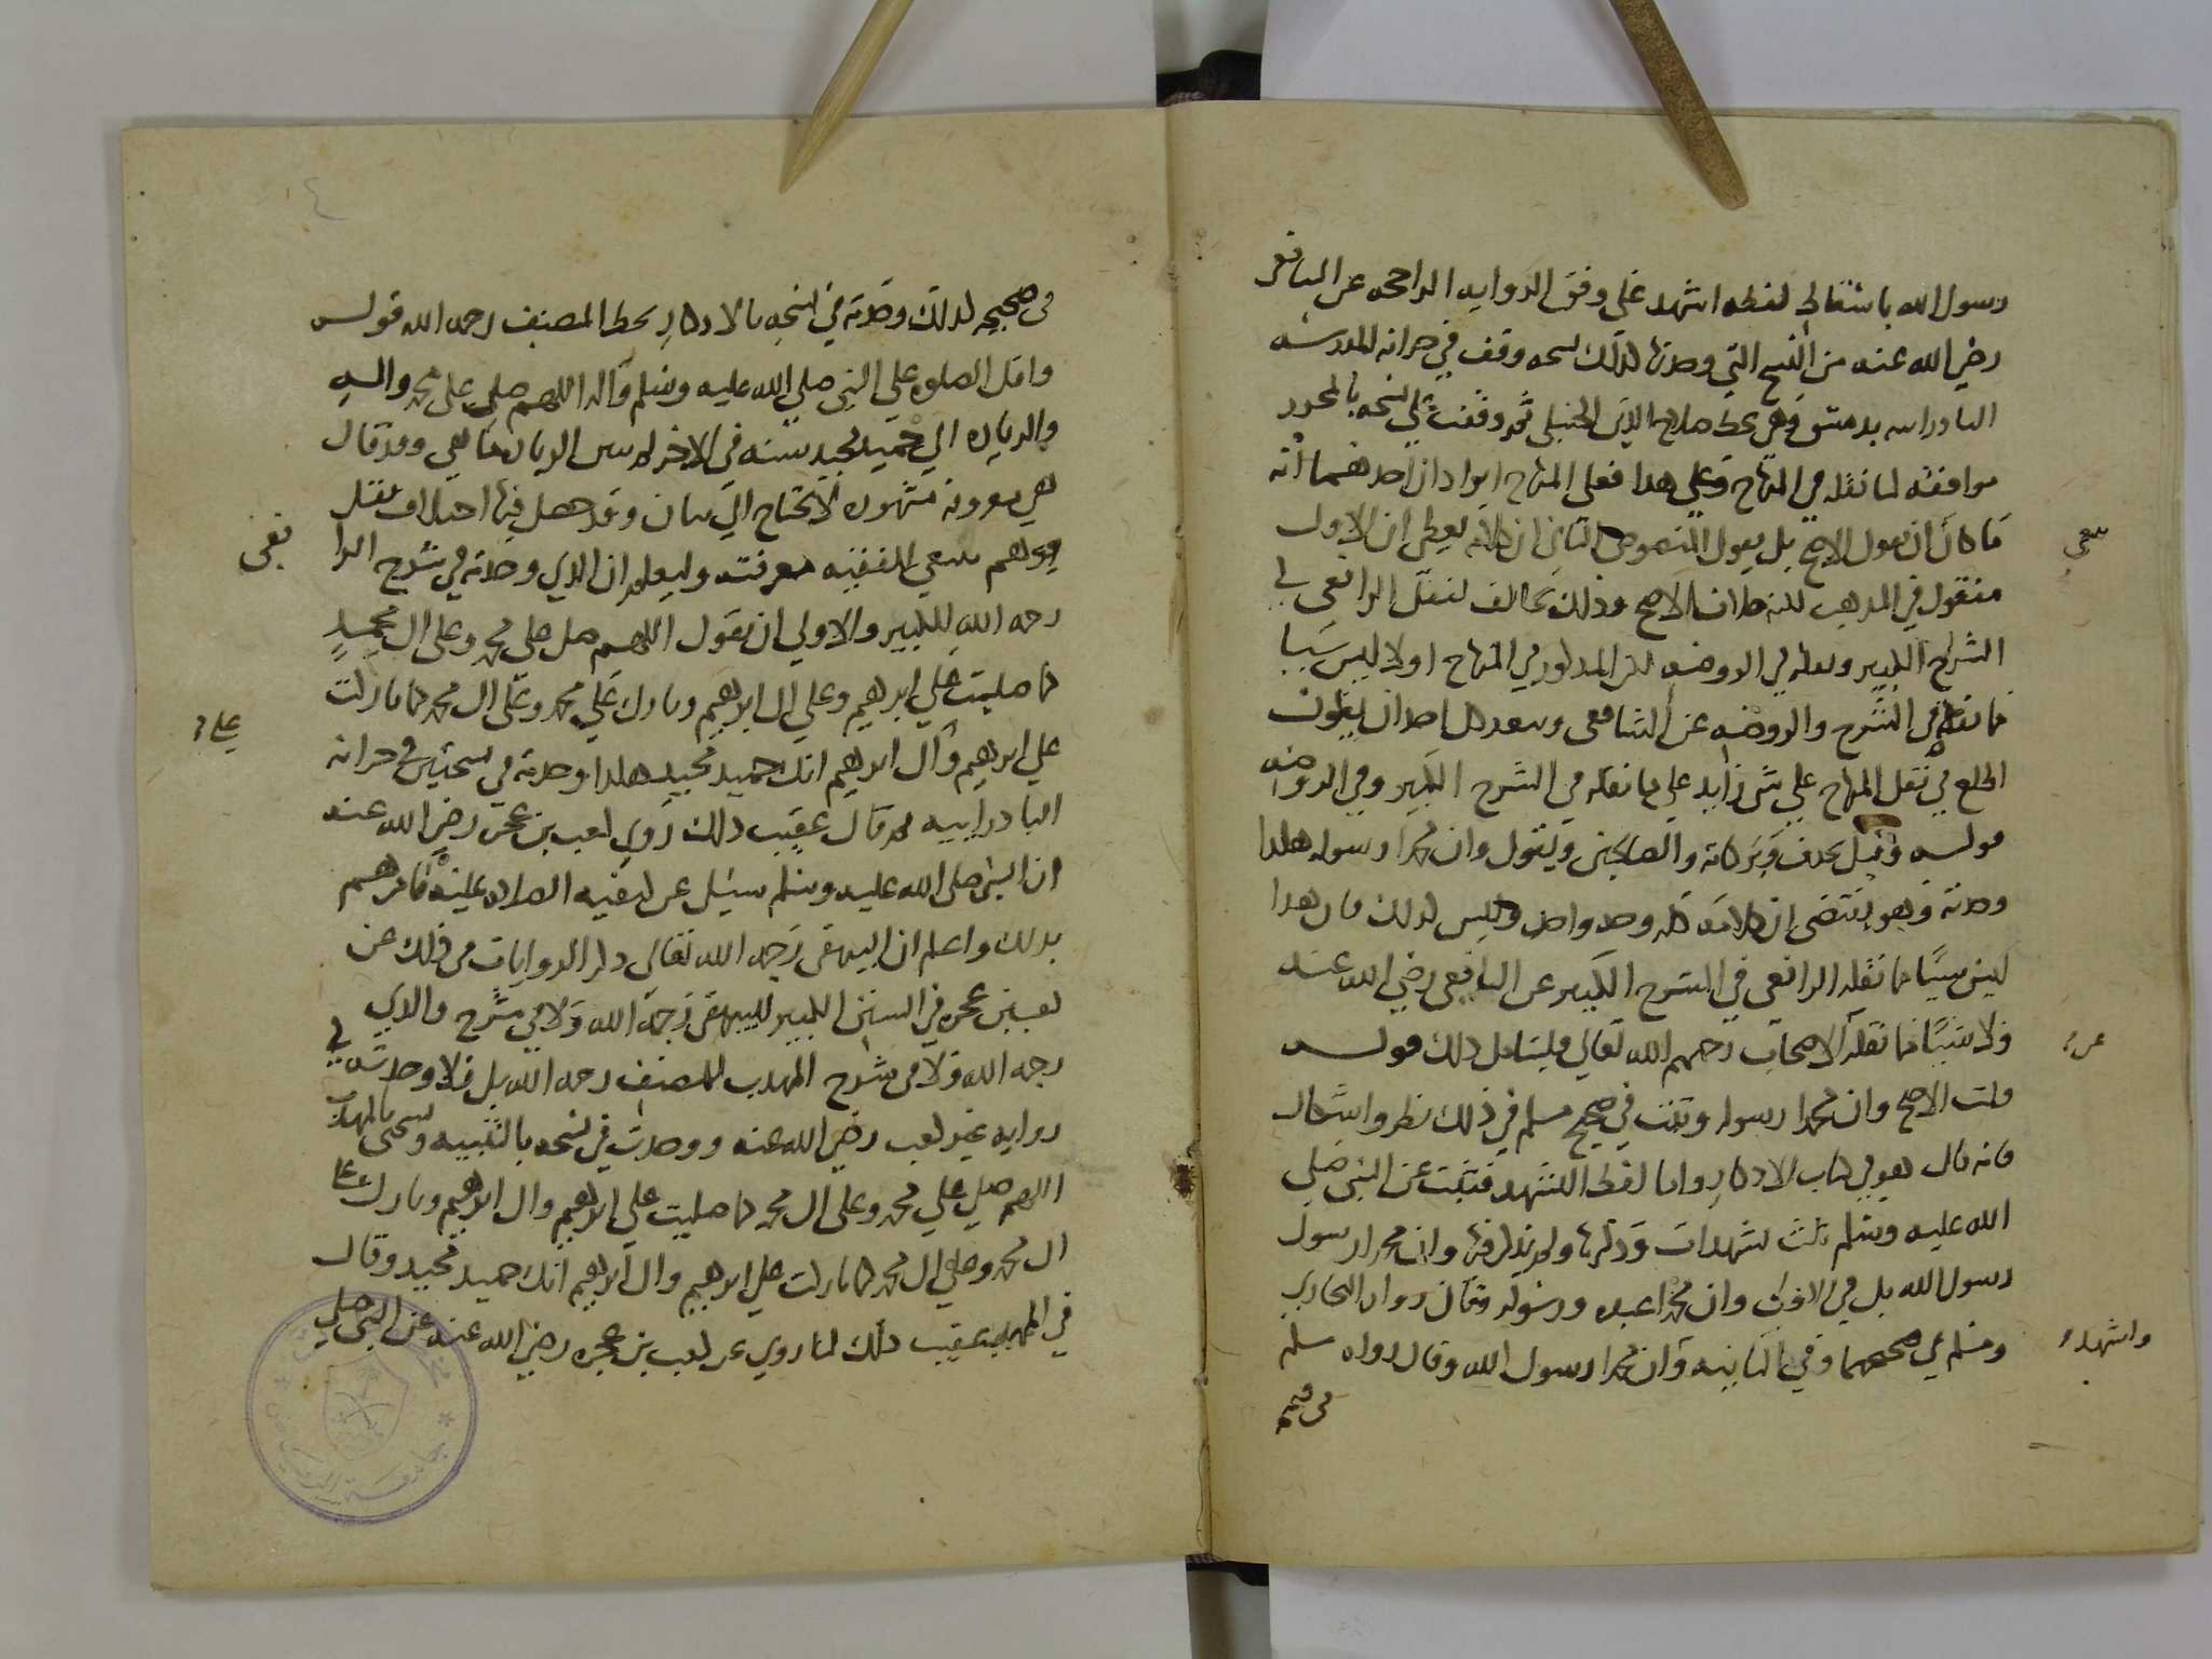 رسول الله باسقاط لفظه اشهد على وفق الروايه الراجحه عن الشافعي
رضي الله عنه من النسخ التي وجدتها كذلك نسخه وقف في خزانه المدرسه
البادرائيه بدمشق وهي بخط صلاح الدين الحنبلي ثم وقفت على نسخه بالمحرر
موافقه لما نقله في المنهاج وعلى هذا فعلى المنهاج ايرادان احدهما انه
ما كان ان يقول الاصح بل يقول المنصوص الثاني ان كلامه يعطي ان الاول
ينبغي
منقول في المذهب لكنه خلاف الاصح وذلك مخالف لنقل الرافعي في
الشرح الكبير ونقله في الروضه لكن المذكور في المنهاج اولا ليس شيا
مما نقله في الشرح والروضه عن الشافعي وسعد كل احد ان يكون
اطلع في نقل المنهاج على شي زايد على ما نقله في الشرح الكبير وفي الروضه
قولـه وقيل يحذف وبركاته والصالحين ويقول وان محمدا رسوله هكذا
وجدته وهو يقتضي ان كلامه كله وجه واحد وليس كذلك فان هذا
ليس شيا مما نقله الرافعي في الشرح الكبير عن الشافعي رضي الله عنه
ولا شيا مما نقله الاصحاب رحمهم الله تعالى فليتامل ذلك قولـه
عن
قلت الاصح وان محمدا رسوله وثبت في صحيح مسلم في ذلك نظر واشكال
فانه قال هو في كتاب الاذكار واما لفظ التشهد فثبت عن النبي صلى
الله عليه وسلم ثلث تشهدات وذكرها ولم يذكر فيها وان محمدا رسول
رسول الله بل في الاولى وان محمدا عبده ورسوله وقال رواه البخاري
ومسلم في صحيحهما وفي الثانيه وان محمدا رسول الله وقال رواه مسلم
واشهد
في صحيحه
في صحيحه كذلك وجدته في نسخه بالاذكار بخط المصنف رحمه الله قولـه
واقل الصلوه على النبي صلى الله عليه وسلم وآله اللهم صلي على محمد وآله
والزياده الى حميد مجيد سنه في الاخر ليس الزياده ماهي وقد قال
هي معروفه مشهوره لا تحتاج الى بيان وقد حصل فيها اختلاف نقل
ووهم ينبغي للفقيه معرفته وليعلم ان الذي وجدته في شرح الرا
فعي
رحمه الله الكبير والاولى ان يقول اللهم صل على محمد وعلى ال محمد
كما صليت على ابرهيم وعلى ال ابرهيم وبارك على محمد وعلى ال محمد كما باركت
على ابرهيم وآل ابرهيم انك حميد مجيد هكذا وجدته في نسختين في خزانه
على
البادرائيه ثم قال عقيب ذلك روي كعب بن عجره رضي الله عنه
ان النبي صلى الله عليه وسلم سئل عن كيفيه الصلاه عليه فامرهم
بذلك واعلم ان البيهقي رحمه الله تعالى ذكر الروايات في ذلك عن
كعب بن عجره في السنن الكبير للبيهقي رحمه الله ولا في شرح والذي
رحمه الله ولا في شرح المهذب للمصنف رحمه الله بل ولا وجدته في
روايه غير كعب رضي الله عنه ووجدت في نسخه بالتنبيه ونسختي بالمهذب
اللهم صل على محمد وعلى ال محمد كما صليت على ابرهيم وال ابرهيم وبارك على
ال محمد وعلى ال محمد كما باركت على ابرهيم وال ابرهيم انك حميد مجيد وقال
في المهذب عقيب ذلك لما روي عن كعب بن عجره رضي الله عنه عن النبي صلى